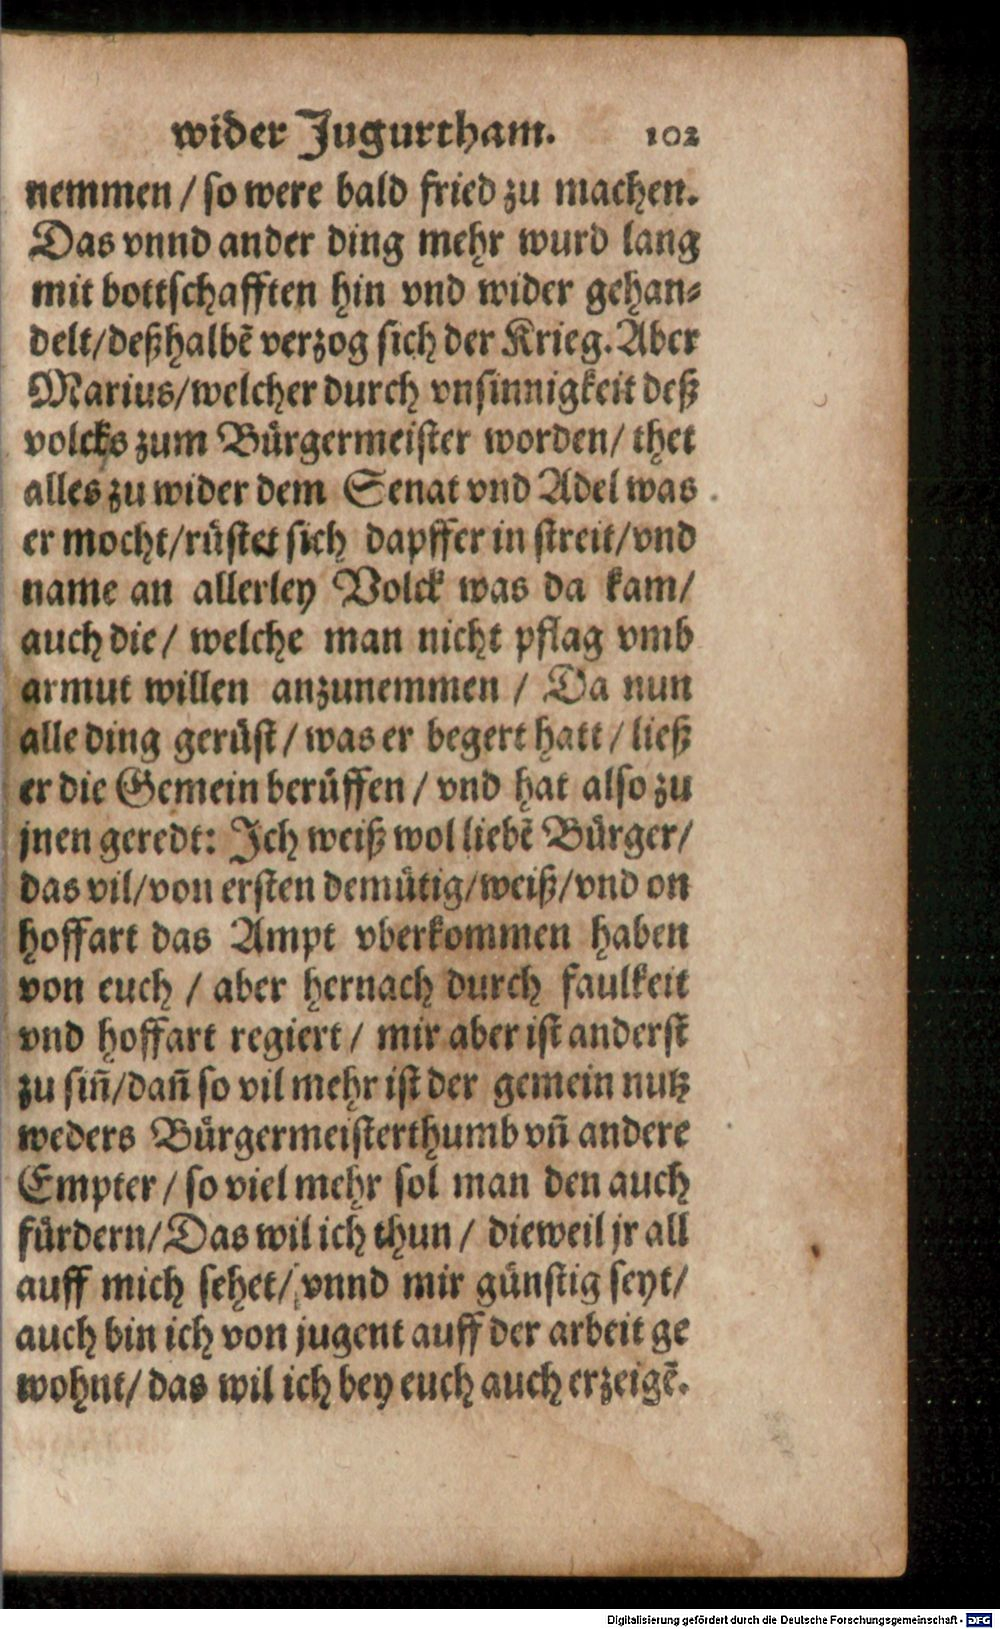 wider Jugurtham. 102
nemmen / so were bald fried zu machen.
Das vnnd ander ding mehr wurd lang
mit bottschafften hin vnd wider gehan-
delt/deßhalbẽ verzog sich der Krieg. Aber
Marius/welcher durch vnsinnigkeit deß
volcks zum Bürgermeister worden/ thet
alles zu wider dem Senat vnd Adel was
er mocht/rüstet sich dapffer in streit/vnd
name an allerley Volck was da kam/
auch die/ welche man nicht pflag vmb
armut willen anzunemmen / Da nun
alle ding gerüst/ was er begert hatt / ließ
er die Gemein berüffen / vnd hat also zu
jnen geredt: Ich weiß wol liebẽ Bürger/
das vil/von ersten demütig/weiß/vnd on
hoffart das Ampt vberkommen haben
von euch / aber hernach durch faulkeit
vnd hoffart regiert / mir aber ist anderst
zu siñ/dañ so vil mehr ist der gemein nutz
weders Bürgermeisterthumb vñ andere
Empter / so viel mehr sol man den auch
fürdern/Das wil ich thun / dieweil jr all
auff mich sehet/ vnnd mir günstig seyt/
auch bin ich von jugent auff der arbeit ge
wohnt/ das wil ich bey euch auch erzeigẽ.
Digitalisierung gefördert durch die Deutsche Forschungsgemeinschaft - DFG